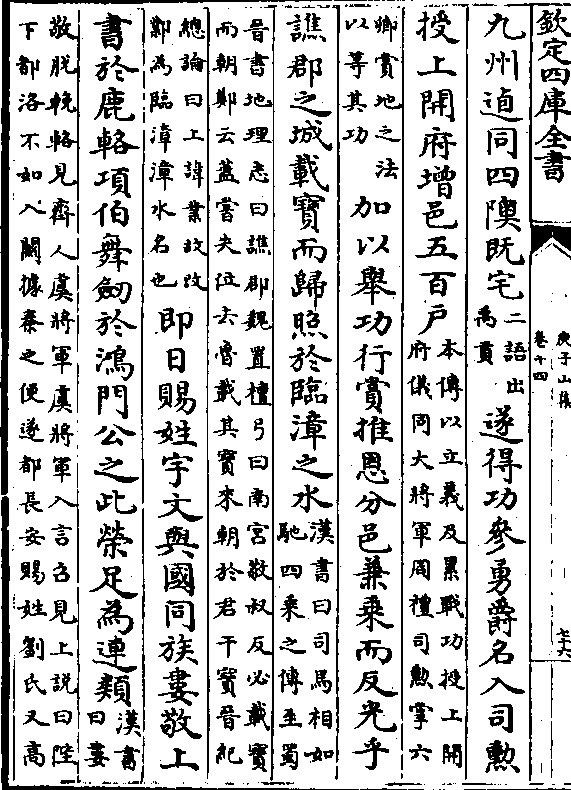 欽定四庫全書
庾子山集
卷十四
七十六
九州逌同四隩既宅二語出禹貢遂得功參勇爵名入司勲
授上開府增邑五百戸本傳以立義及累戰功授上開府儀同大將軍周禮司勲掌六
鄉賞地之法以等其功加以舉功行賞推恩分邑兼乘而反光乎
譙郡之城載寶而歸照於臨漳之水漢書曰司馬相如馳四乘之傳至蜀
晉書地理志曰譙郡魏置檀弓曰南宮敬叔反必載寶而朝鄭云蓋嘗失位去魯載其寶來朝於君干寶晉紀
總論曰上諱業故改鄴為臨漳漳水名也即日賜姓宇文與國同族婁敬上
書於鹿輅項伯舞劒於鴻門公之此榮足為連類漢書曰婁
敬脫輓輅見齊人虞將軍虞將軍入言召見上說曰陛下都洛不如入關據秦之便遂都長安賜姓劉氏又高